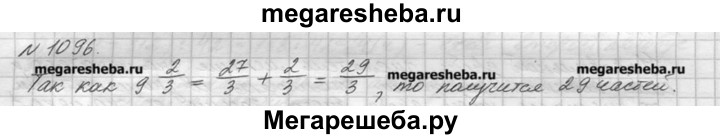 megaresheba.ru
№ 1096.
megaresheba.ru megaresheba.ru megaresheba.ru
Так как 9 2/3 = 27/3 + 2/3 = 29/3, то получится 29 частей.
megaresheba.ru
Мегарешеба.ру